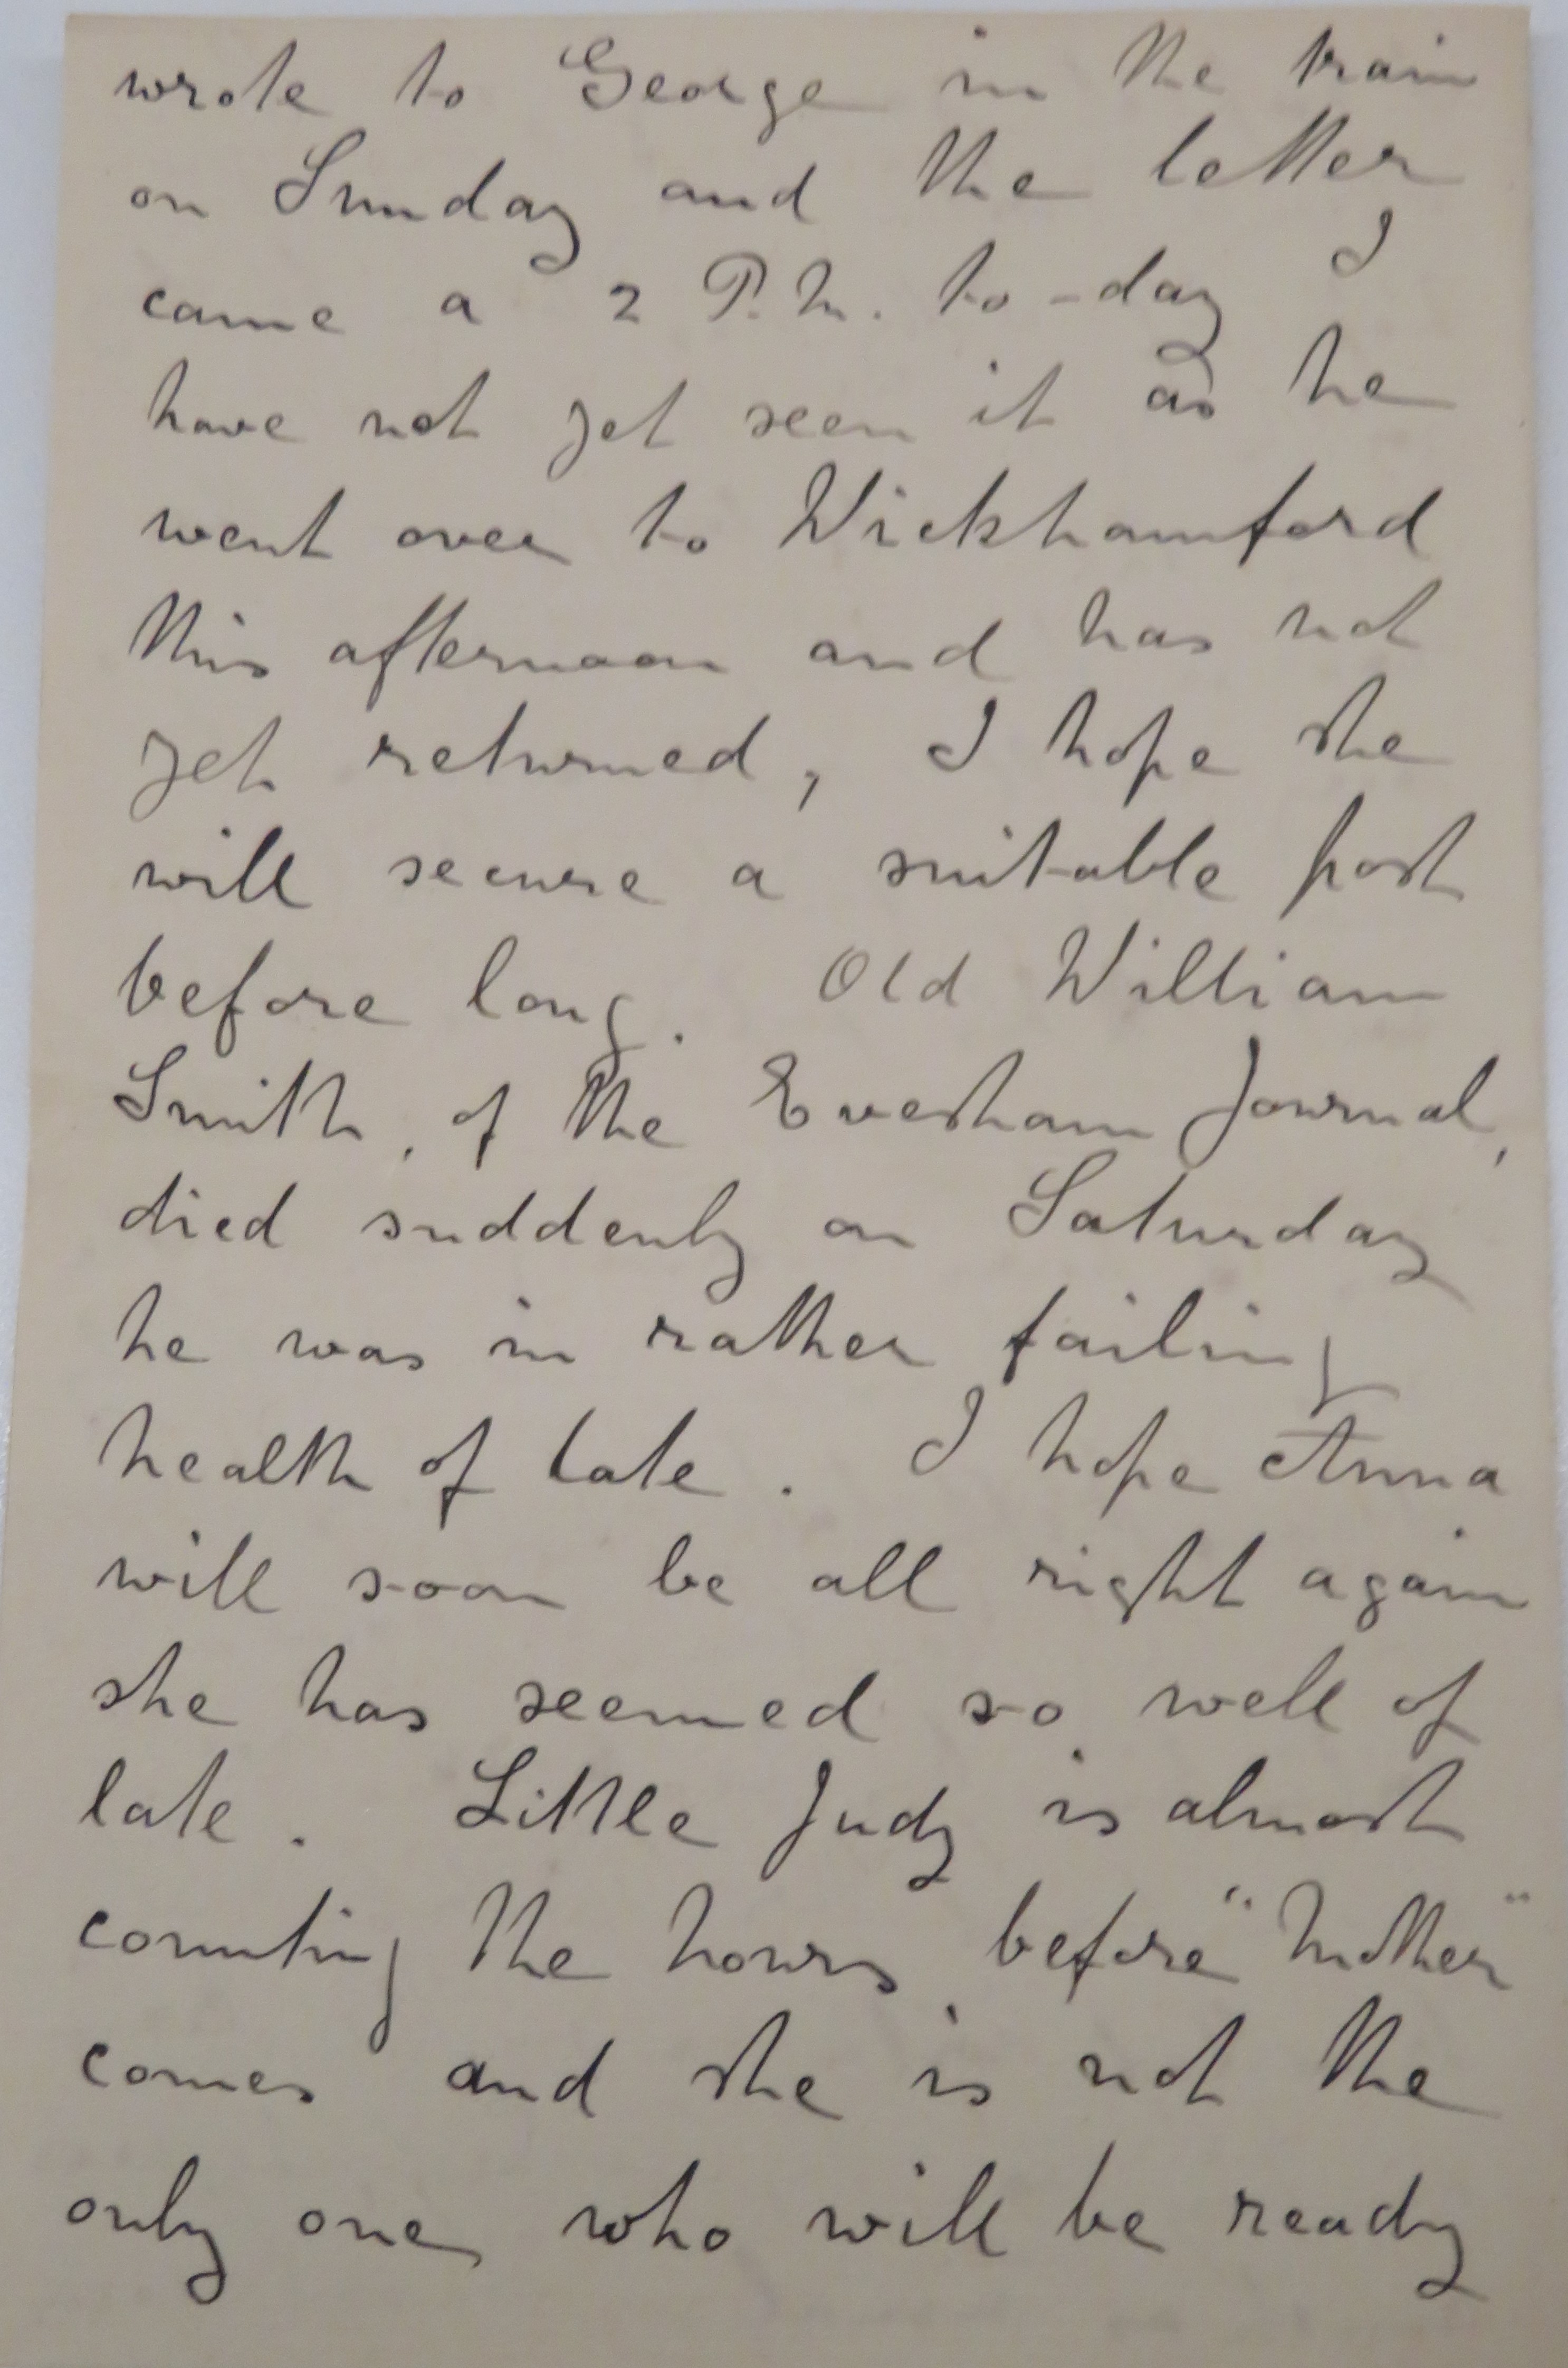 wrote to George in the train
on Sunday and the letter
came a 2 P.M. to-day I
have not yet seen it as he
went over to Wickhamford
this afternoon and has not
yet returned, I hope she
will secure a suitable post
before long. Old William
Smith, of the Evesham Journal,
died suddenly on Saturday
he was in rather failing
health of late. I hope Anna
will soon be all right again
she has seemed so well of
late. Little Judy is almost
counting the hours before "Mother"
comes and she is not the
only one who will be ready